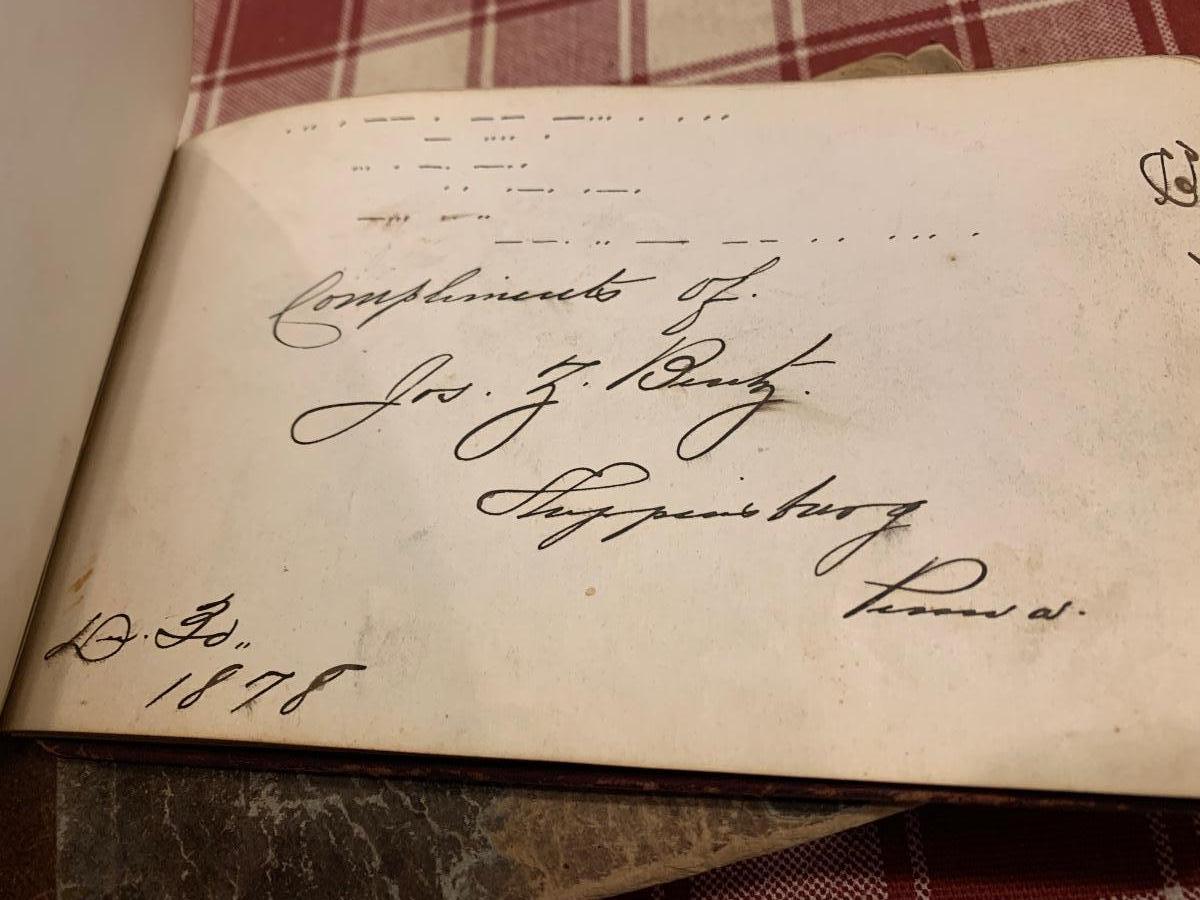 . .. . — — . — — —... . . . ..
— .... .
... . —. —..
.. .—. .—.
—... —..
— —. .. — — — .. ... .
Compliments of.
Jos. Z. Bentz.
Shippensburg
Penna.
1878